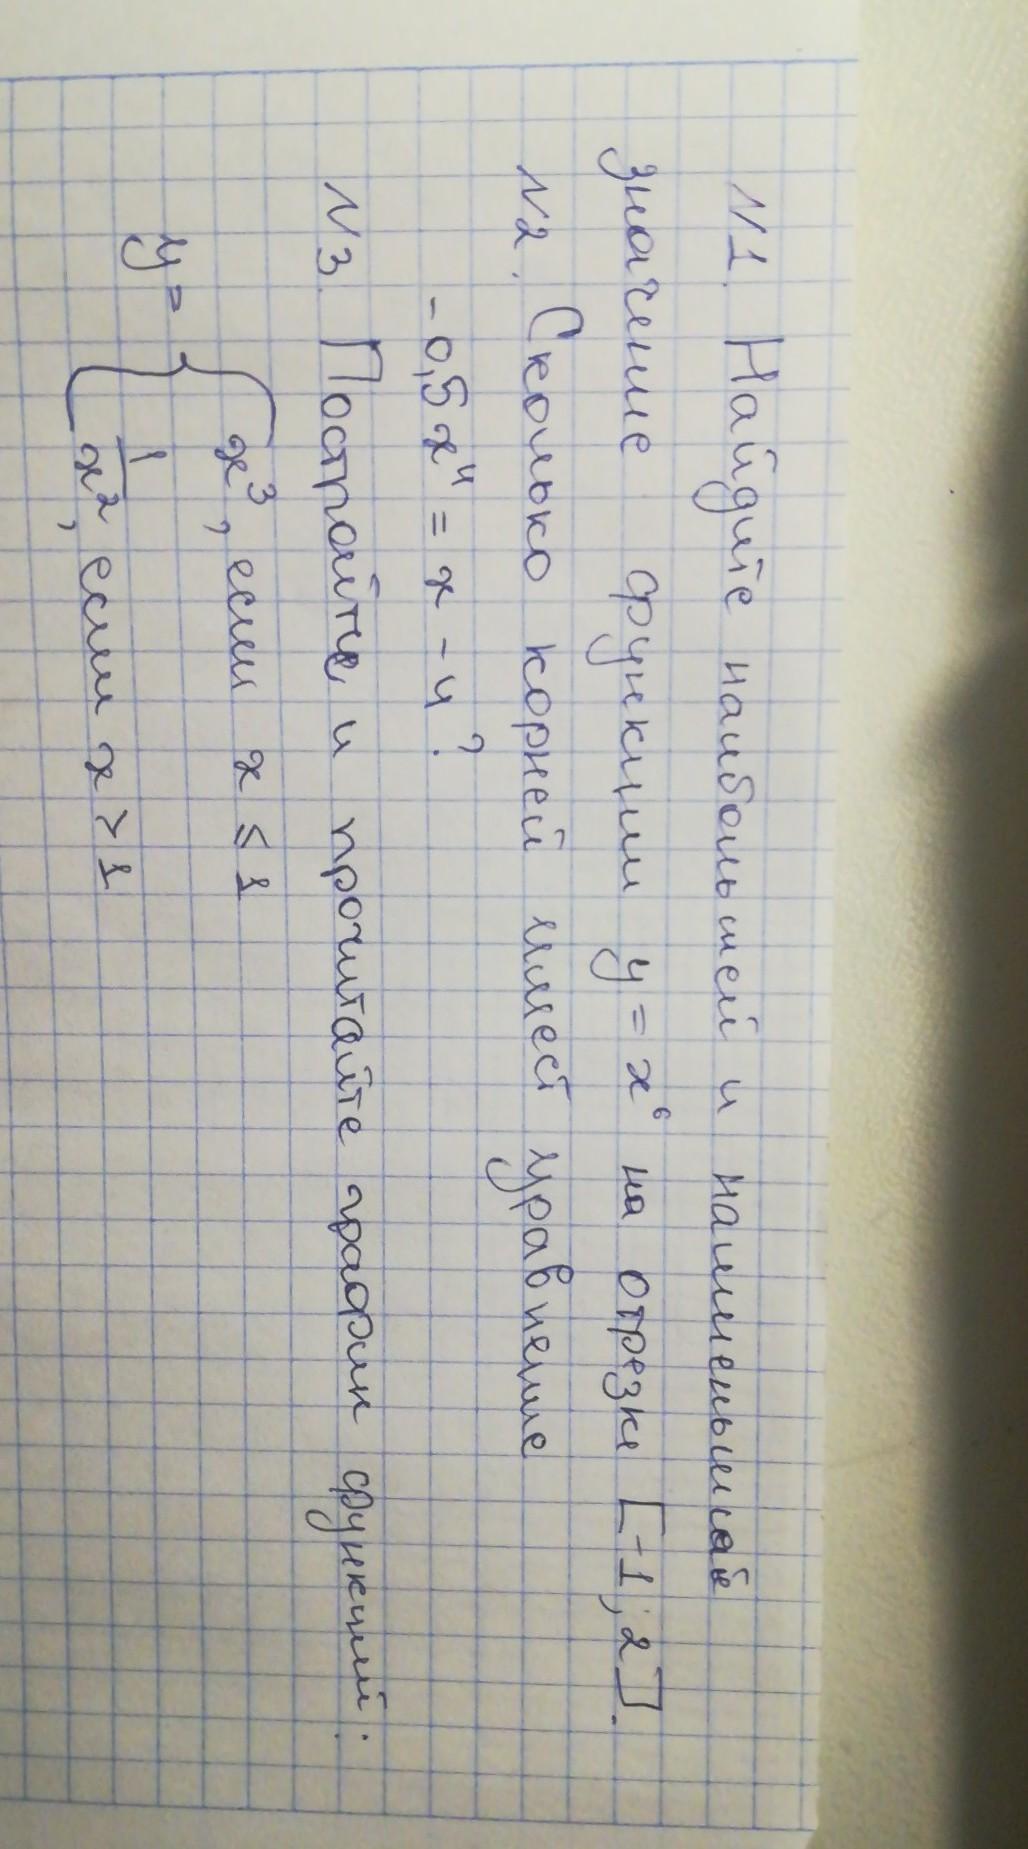 N1. Найдите наибольшей и наименьшей
значение функции y = x⁶ на отрезке [-1; 2].
N2. Сколько корней имеет уравнение
-0,5x⁴ = x - 4?
N3. Постройте и прочитайте график функций:
y = { x³, если x ≤ 1
1/x², если x > 1